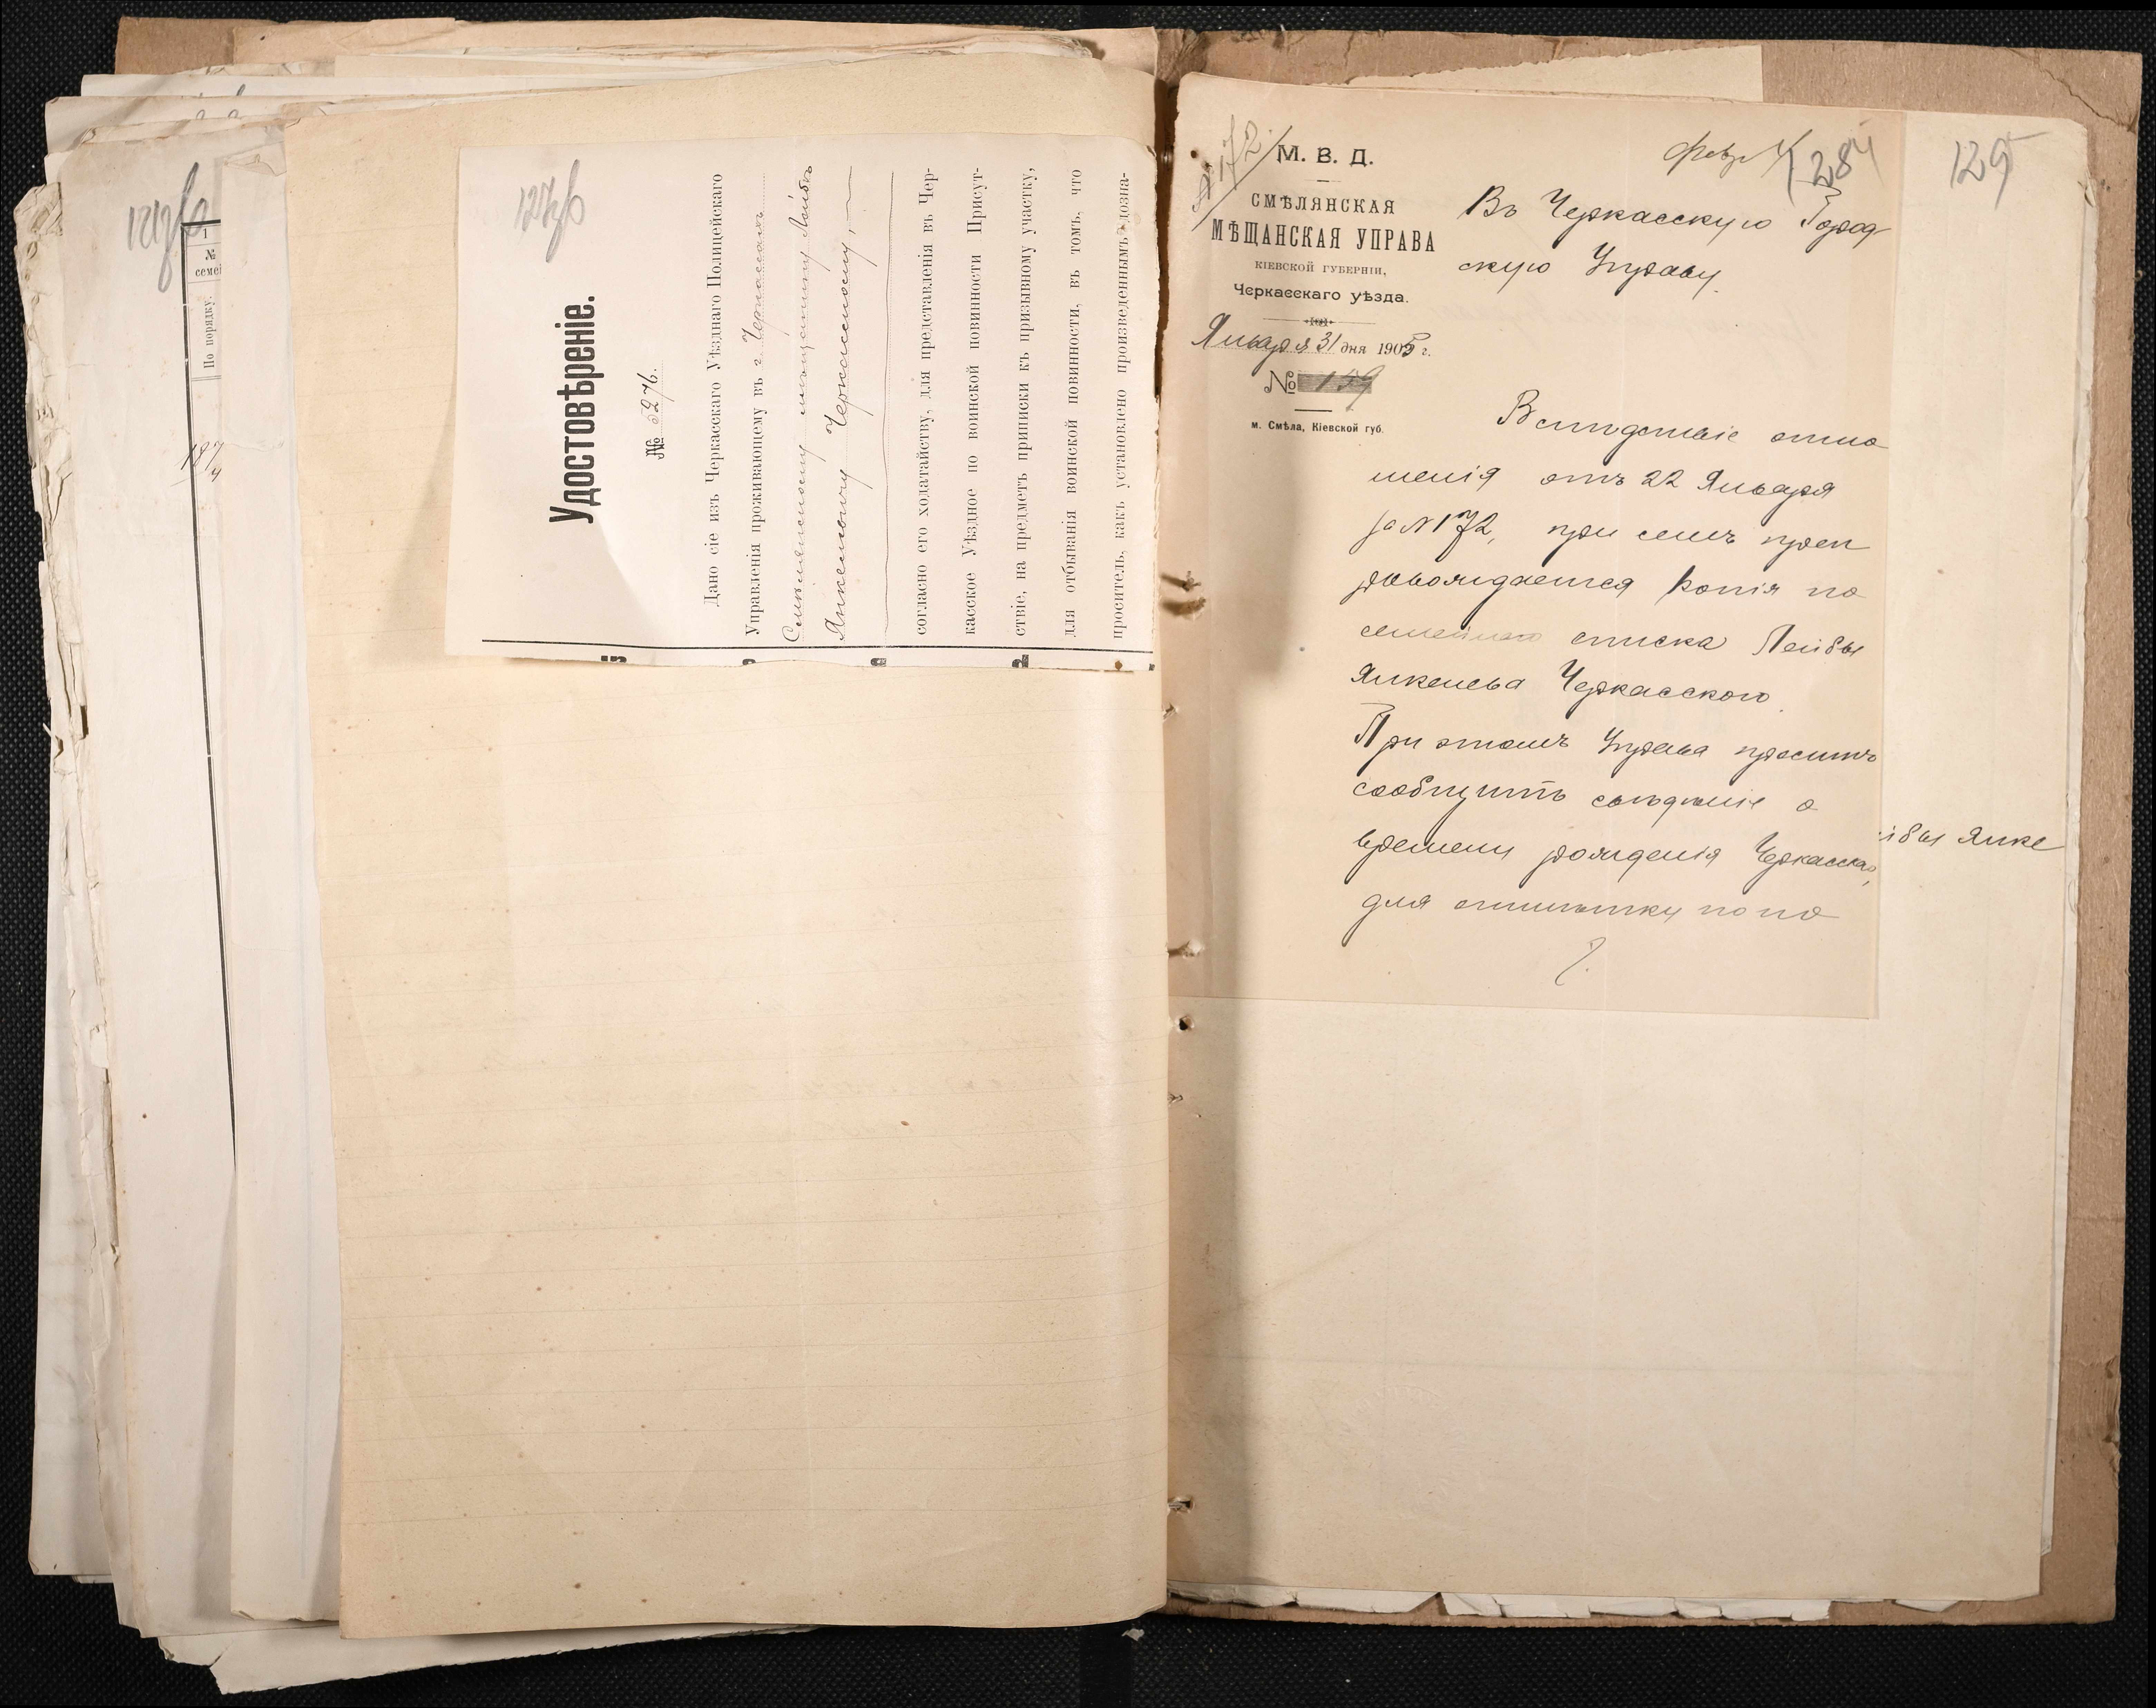 127
1
№
семей
По порядку.
127
Удостовѣреніе.
№ 5276.
Дано сіе изъ Черкасскаго Уѣзднаго Полицейскаго
Управленія проживающему въ г. Черкассахъ
Смѣлянскому мѣщанину Лейбѣ
Янкелевичу Черкасскому,
согласно его ходатайству, для представленія въ Чер-
касское Уѣздное по воинской повинности Присут-
ствіе, на предметъ приписки къ призывному участку,
для отбыванія воинской повинности, въ томъ, что
проситель, какъ установлено произведеннымъ дозна-
172
М. В. Д.
СМѢЛЯНСКАЯ
МѢЩАНСКАЯ УПРАВА
КІЕВСКОЙ ГУБЕРНІИ,
Черкасскаго уѣзда.
Января 31 дня 1905 г.
№ 159
м. Смѣла, Кіевской губ.
284
129
Въ Черкасскую Город
скую Управу.
Вслѣдствіе отно
шенія отъ 22 Января
за № 172, при семъ преп
ровождается копія по
семейнаго списка Лейбы
Янкелева Черкасского.
При этомъ Управа проситъ
сообщить свѣдѣніе о
времени рожденія Черкасскаго,
для отмѣтки по по
йбы Янке